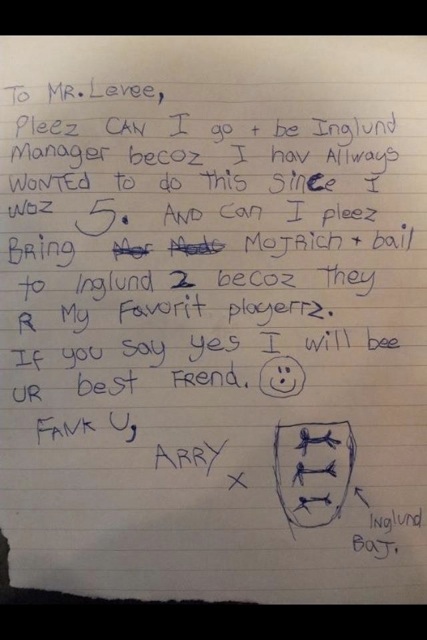 To MR. Levee,
Pleez CAN I go + be Inglund
Manager becoz I hav Allways
WONTED to do this since I
woz 5. AND can I pleez
BRING MOJRich + bail
to Inglund 2 becoz they
R My Favorit playerrz.
If you say yes I will bee
UR best FREND.
FANK U,
ARRY
x
Inglund
BaJ.